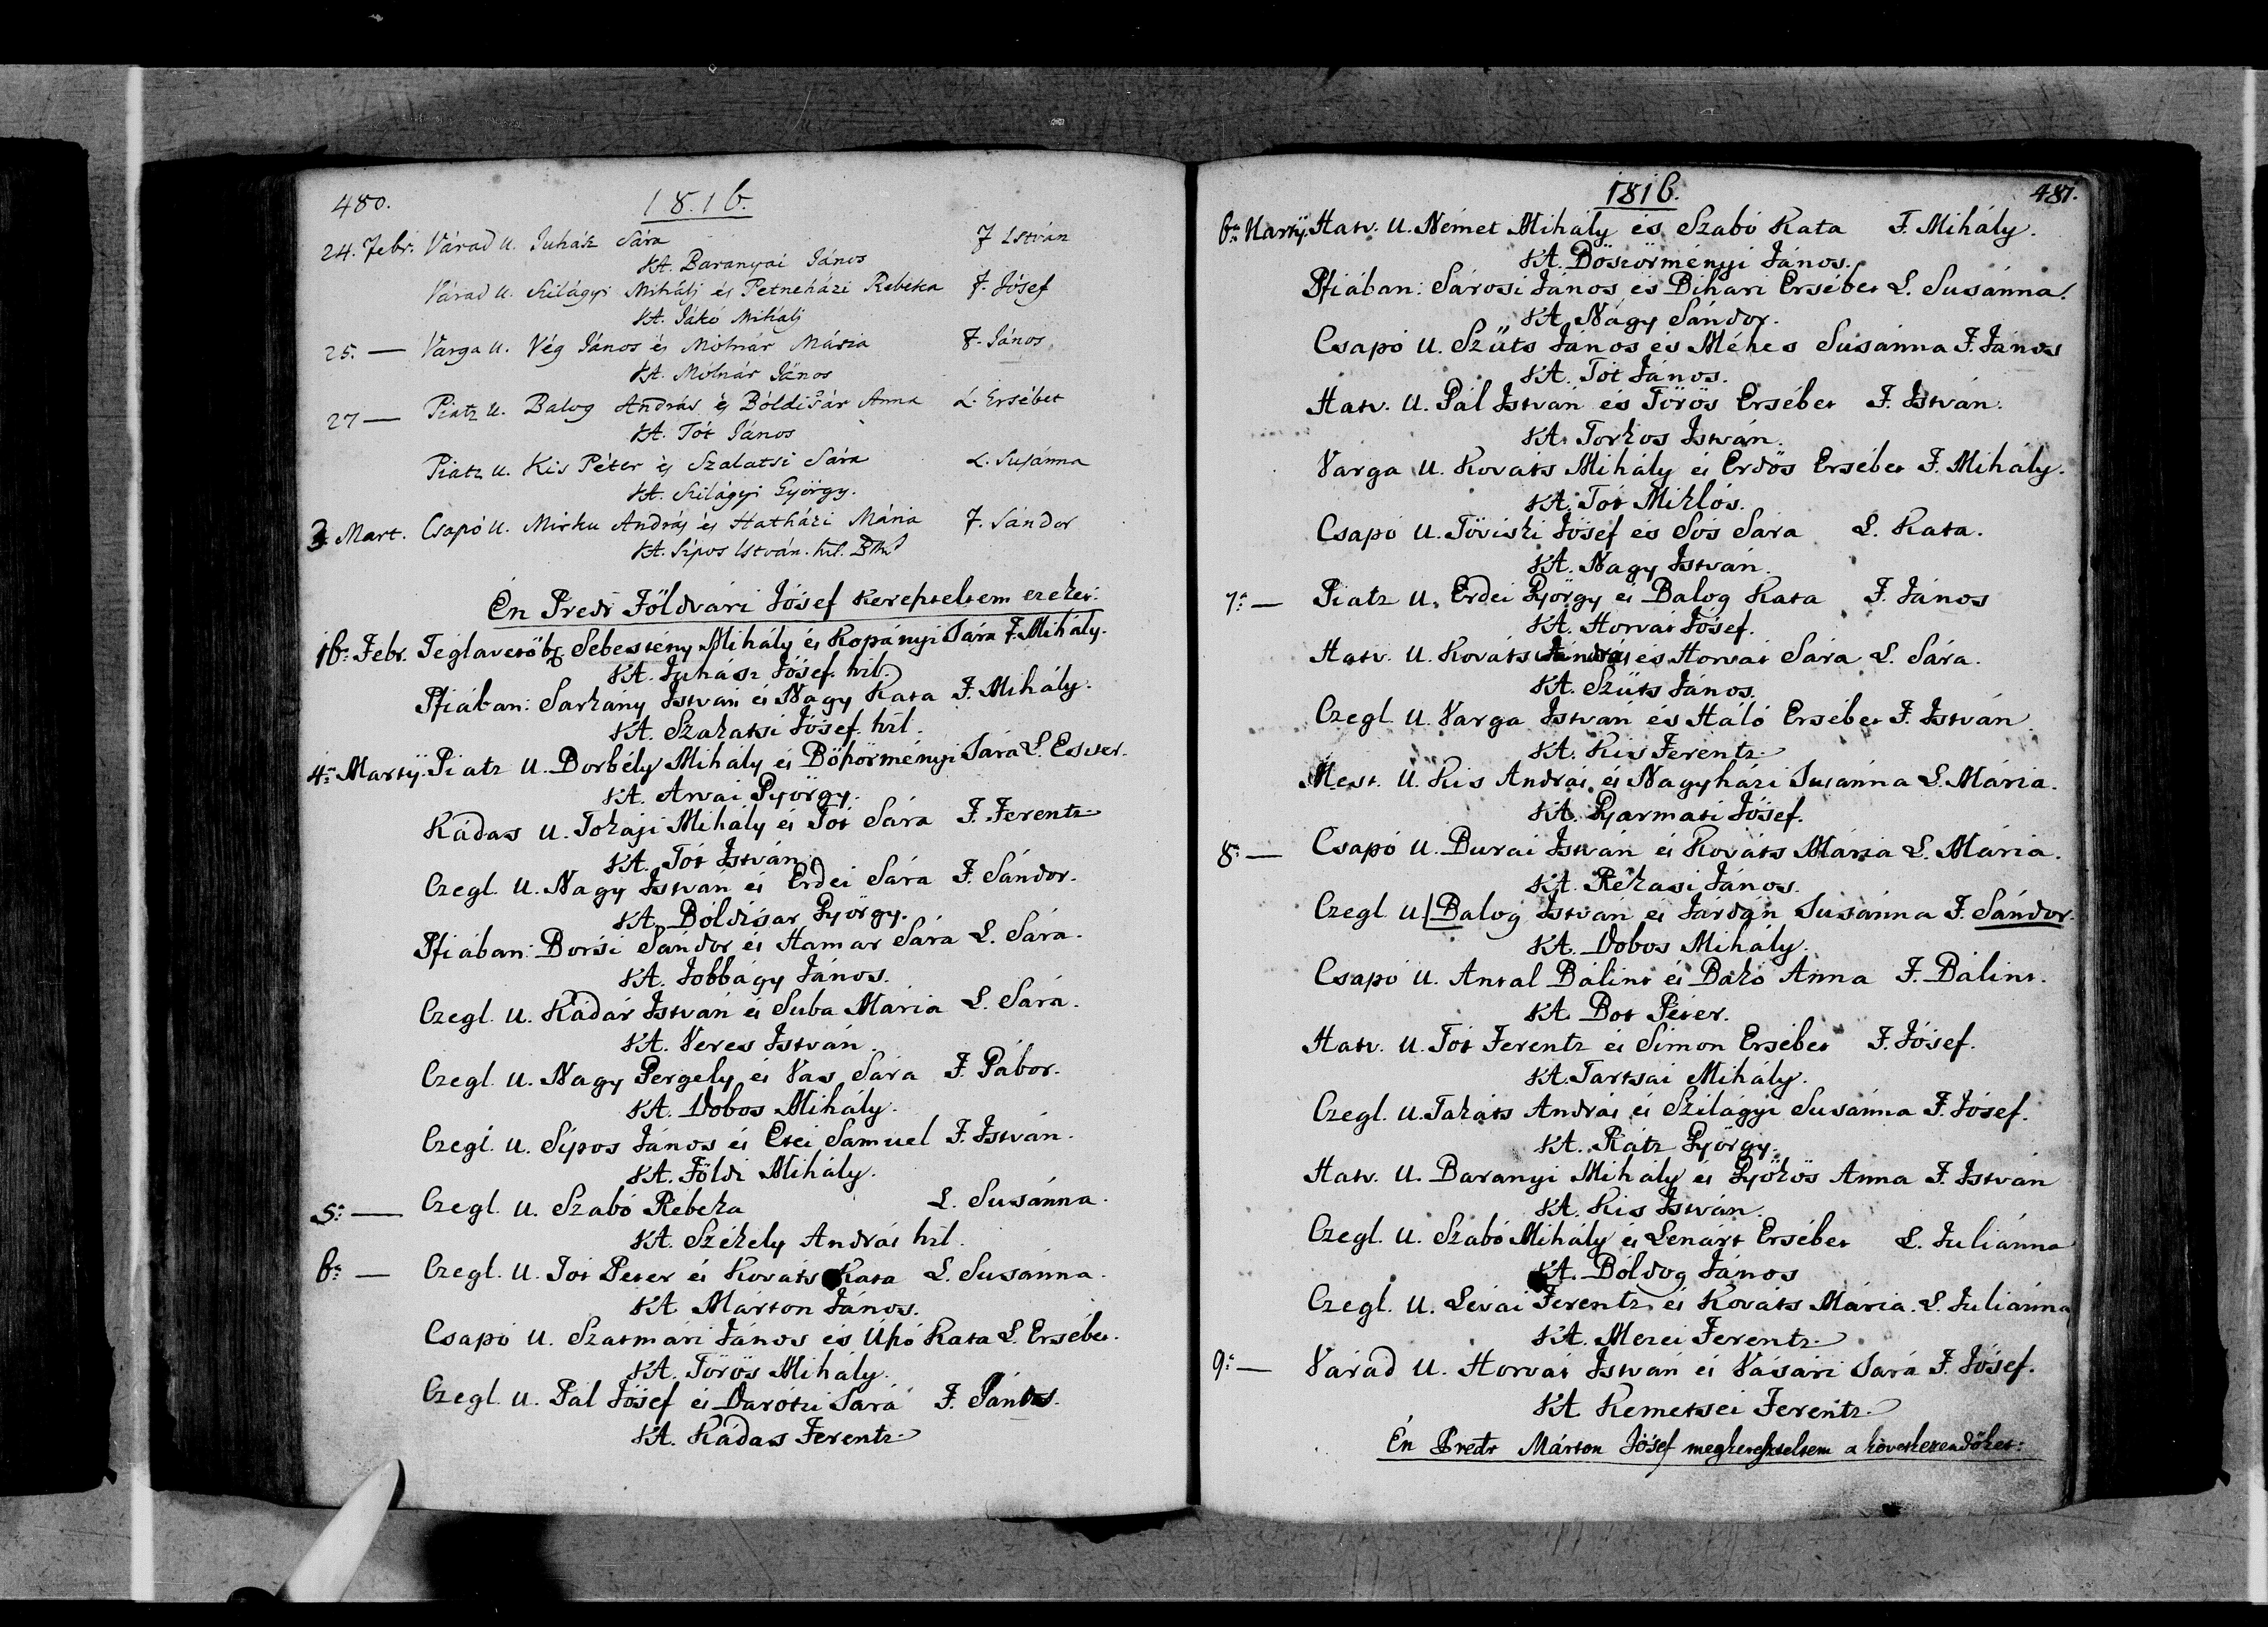 480.
1816.
24. Febr. Várad u. Juhász Sára F István
KA. Baranyai János
Várad u. Szilágyi Mihálj és Petneházi Rebeka F. Jósef
KA. Jákó Mihálj
25. — Varga u. Vég János és Mólnár Mária F. János
KA. Mólnár János
27 — Piatz u. Balog András és Bóldisár Anna L. Ersébet
KA. Tót János
Piatz u. Kis Péter és Szalatsi Sára L. Susánna
KA. Szilágyi György.
3 Mart. Csapó u. Mirku András és Hatházi Mária F. Sándor
KA. Sípos István. hit.
Én Predr Földvári Jósef kereszteltem ezeket:
16: Febr. Téglavető Sebestény Mihály és Kopányi Sára F. Mihály.
KA. Juhász Jósef. hit.
Pfiában: Sarkány István és Nagy Kata F. Mihály.
KA. Szakatsi Jósef. hit.
4: Martÿ. Piatz u. Borbély Mihály és Böszörményi Sára L. Eszter.
KA. Arvai György.
Kádas u. Tokaji Mihály és Tót Sára F. Ferentz
KA. Tót István.
Czegl. u. Nagy István és Erdei Sára F. Sándor.
KA. Bóldisár György.
Pfiában: Borsi Sándor és Hamar Sára L. Sára.
KA. Jobbágy János.
Czegl. u. Kádár István és Suba Mária L. Sára.
KA. Veres István.
Czegl. u. Nagy Gergely és Vas Sára F. Gábor.
KA. Dobos Mihály.
Czegl. u. Sípos János és Etei Samuel F. István.
KA. Földi Mihály.
5: — Czegl. u. Szabó Rébeka L. Susánna.
KA. Székely András hit.
6: — Czegl. u. Tot Péter és Kováts Kata L. Susánna.
KA. Márton János.
Csapó u. Szatmári János és Úszó Kata L. Ersébet.
KA. Törös Mihály.
Czegl. u. Pál Jósef és Darótzi Sára F. János.
KA. Kádas Ferentz.
1816.
481.
6: Martÿ. Hatv. u. Német Mihály és Szabó Kata F. Mihály.
KA. Böszörményi János.
Pfiában: Sárosi János és Bihari Ersébet L. Susánna.
KA. Nagy Sándor.
Csapó u. Szűts János és Méhes Susánna F. János
KA. Tót János.
Hatv. u. Pál István és Törös Ersébet F. István.
KA. Torkos István.
Varga u. Kováts Mihály és Erdős Ersébet F. Mihály.
KA. Tót Miklós.
Csapó u. Töviski Jósef és Sós Sára L. Kata.
KA. Nagy István.
7: — Piatz u. Erdei György és Balog Kata F. János
KA. Horvát Jósef.
Hatv. u. Kováts András és Horvát Sára L. Sára.
KA. Szűts János.
Czegl. u. Varga István és Háló Ersébet F. István
KA. Kis Ferentz.
Mest. u. Kis András és Nagyházi Susánna L. Mária.
KA. Gyarmati Jósef.
8: — Csapó u. Burai István és Kováts Mária L. Mária.
KA. Rékasi János.
Czegl. u. Balog István és Járdán Susánna F. Sándor.
KA. Dobos Mihály.
Csapó u. Antal Bálint és Bakó Anna F. Bálint.
KA. Bot Péter.
Hatv. u. Tót Ferentz és Simon Ersébet F. Jósef.
KA. Tartsai Mihály.
Czegl. u. Takáts András és Szilágyi Susánna F. Jósef.
KA. Rátz György.
Hatv. u. Baranyi Mihály és Gyökös Anna F. István
KA. Kis István.
Czegl. u. Szabó Mihály és Lenárt Ersébet L. Juliánna
KA. Bóldog János
Czegl. u. Levai Ferentz és Kováts Mária. L. Juliánna
KA. Mezei Ferentz.
9: — Várad u. Horvát István és Vásári Sára F. Jósef.
KA. Kemetsei Ferentz.
Én Predr Márton Jósef megkereszteltem a következendőket: